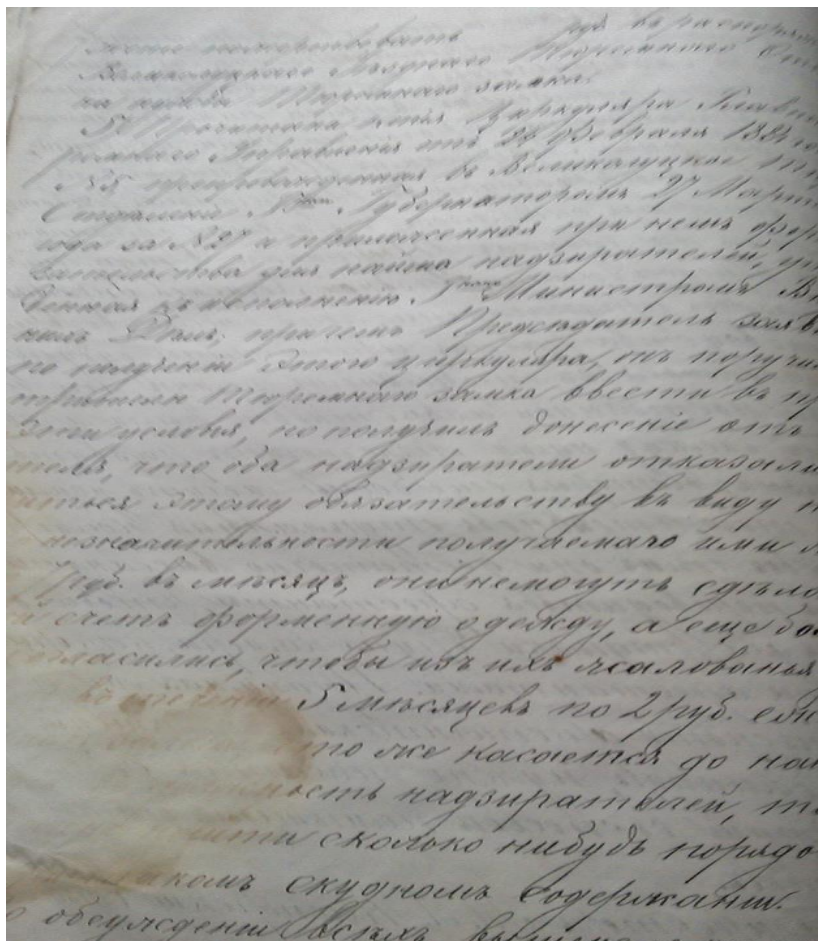 пожертвовать руб. въ распоряже
Великолуцкаго Уѣзднаго Тюремнаго Отд
на нужды Тюремнаго замка.
5, Прочитана копія Циркуляра Главн
ремнаго Управленія отъ 24 Февраля 188
№ 5 препровожденная въ Великолуцкое
Отдѣленіе Губернаторомъ 27 Марта
года за № 97 и приложенная при немъ фор
зательства для найма надзирателей, ут
денная къ исполненію Министромъ В
нихъ Дѣлъ; причемъ Предсѣдатель заяв
по полученіи этого циркуляра, онъ поручи
Тюремнаго замка ввести въ
эти условія, но получилъ донесеніе отъ
теля, что оба надзиратели отказали
этому обязательству въ виду
незначительности получаемаго ими
7 руб. въ мѣсяцъ, они немогутъ сдѣла
счетъ форменную одежду, а еще бо
согласились, чтобы изъ ихъ жалованья
въ теченіи 5 мѣсяцевъ по 2 руб. еже
то же касается до на
ность надзирателей, т
сколько нибудь порядо
скудномъ содержаніи.
обсужденіи всѣхъ